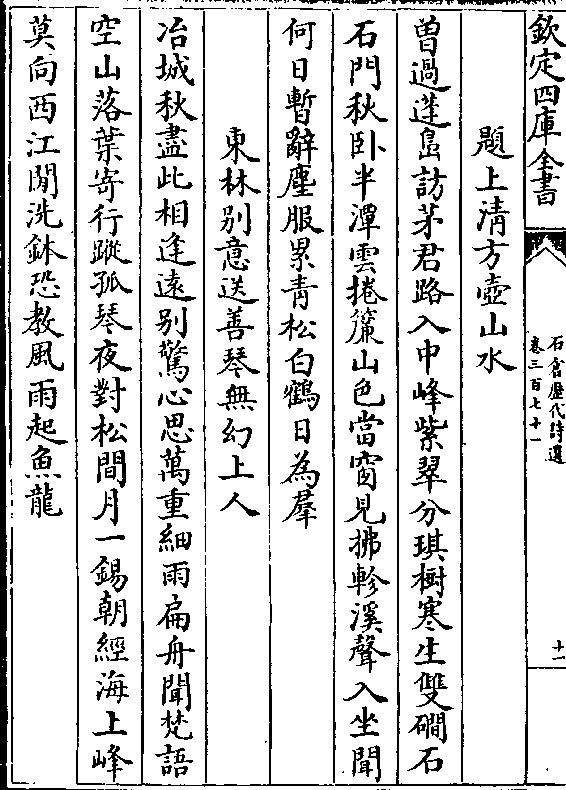 欽定四庫全書
石倉歷代詩選
卷三百七十一
十一
題上清方壺山水
曽過蓬島訪茅君路入中峰紫翠分琪樹寒生雙磵石
石門秋卧半潭雲捲簾山色當窗見拂軫溪聲入坐聞
何日暫辭塵服累青松白鶴日為羣
東林别意送善琴無幻上人
冶城秋盡此相逢遠别驚心思萬重細雨扁舟聞梵語
空山落葉寄行蹤孤琴夜對松間月一錫朝經海上峰
莫向西江閒洗鉢恐教風雨起魚龍